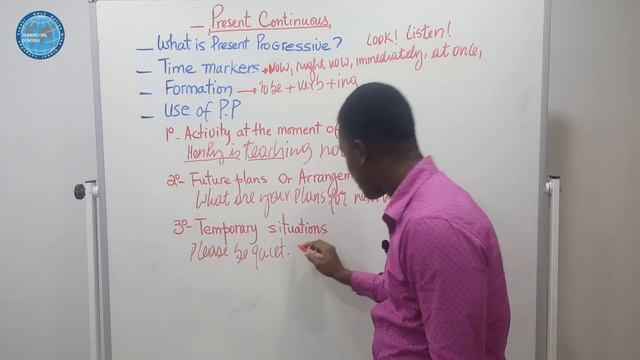 Present Continuous
Look! Listen!
— What is Present Progressive?
— Time markers → Now, right now, immediately, at once,
— Formation → To be + verb + ing
— Use of P.P
1º- Activity at the moment of
Henry is teaching now
2º- Future plans Or Arrangem
What are your plans for
3º- Temporary situations
Please be quiet.